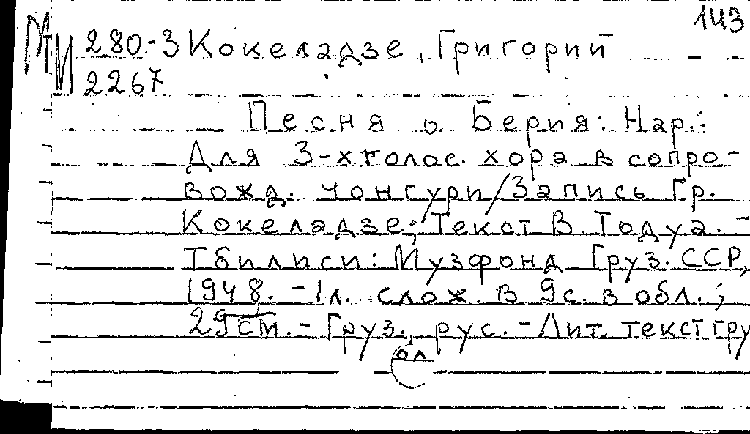 143
МИ 280-3 Кокеладзе, Григорий
2267
Песня о Берия: Нар.:
Для 3-хголос. хора в сопро-
вожд. чонгури/Запись Гр.
Кокеладзе; Текст В. Тодуа. -
Тбилиси: Музфонд Груз. ССР,
1948. - 1л. слож. в 9с. в обл.;
29см. - Груз., рус. - Лит. текст гру